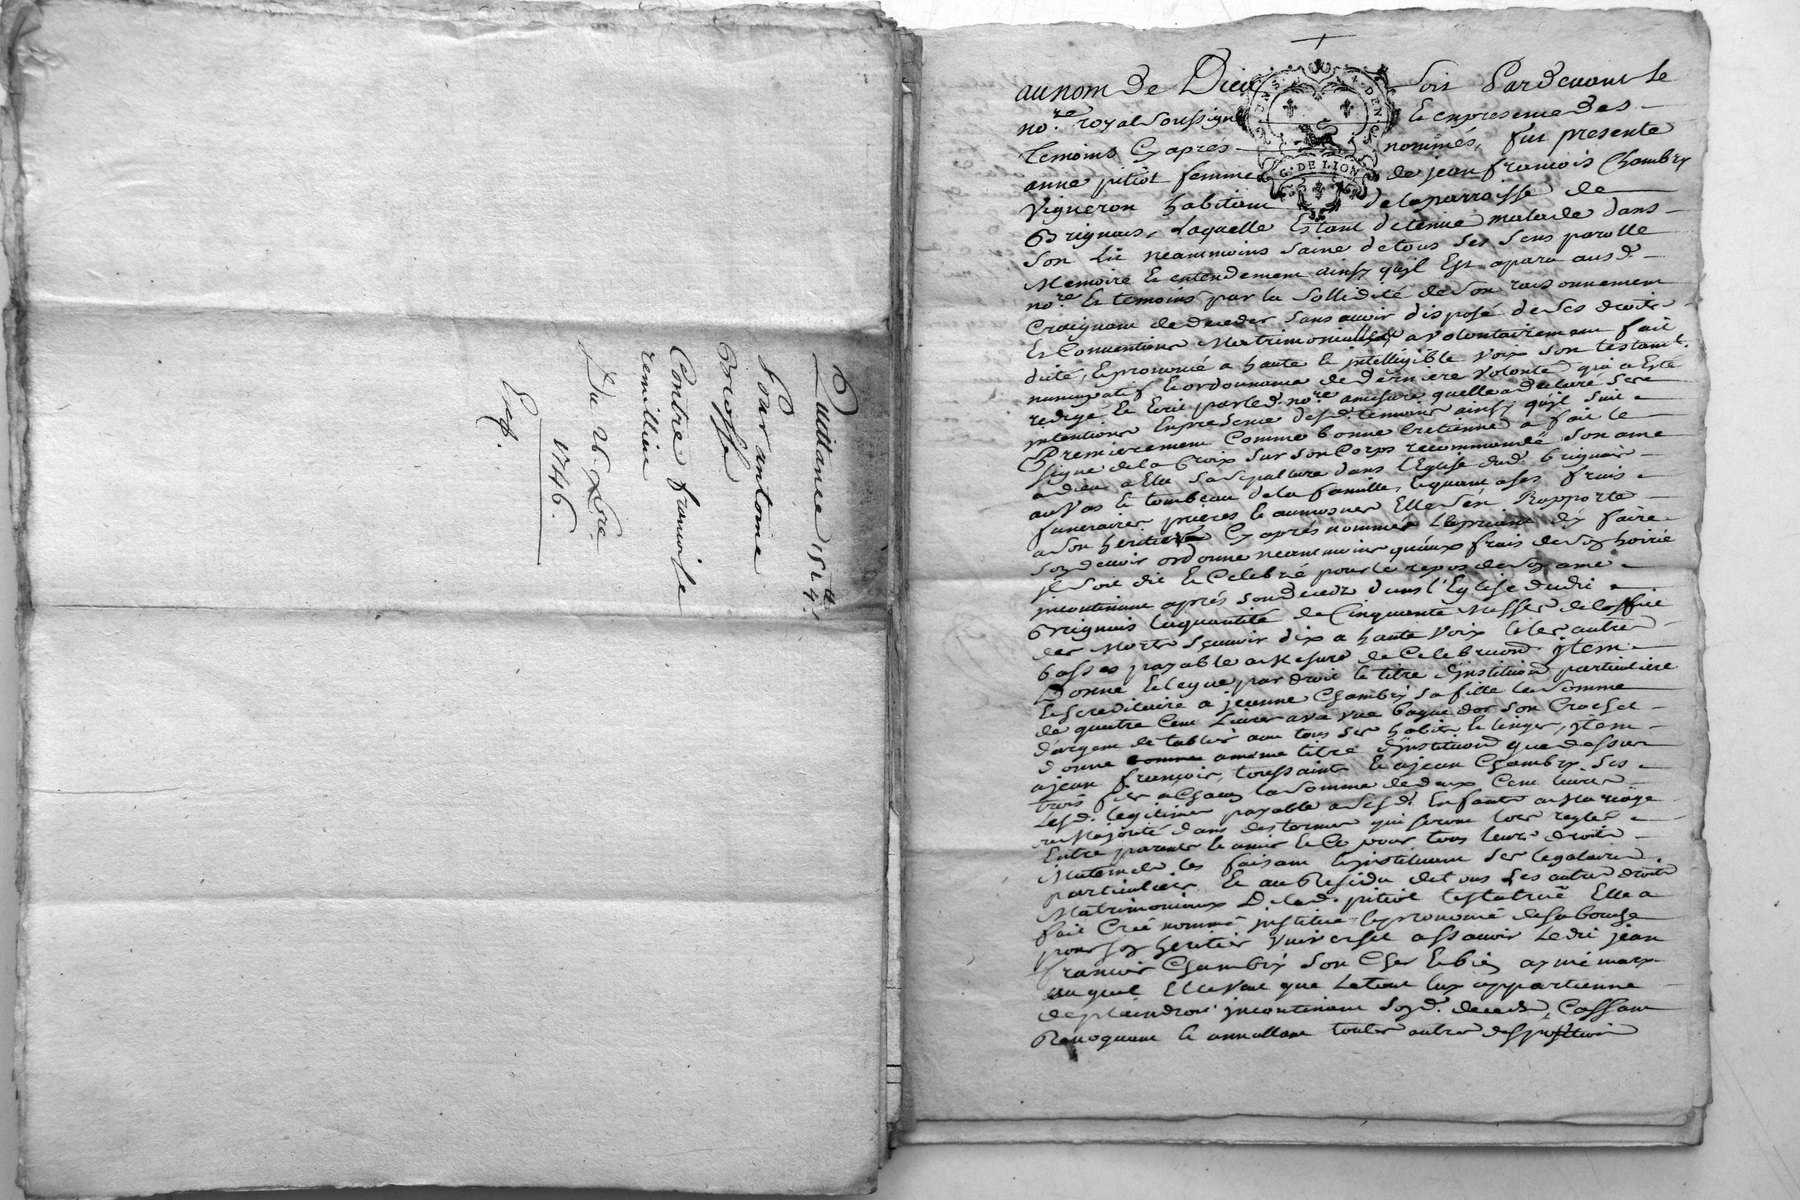 Quittance 15lt 4s
Pour antoine
Brosse
Contre francoise
remilliue
Du 26 Xbre
1746.
Exp.
au nom de Dieu soit Pardevant le
no.re royal soussigné & en presence des
temoins cy aprés nommés, fut presente
anne pitiot femme de jean françois Chambry
vigneron habitant de la parroisse de
Brignais, Laquelle Estant detenue malade dans
son lit neantmoins saine de tous ses sens parolle
Memoire & entendement ainsy quil Est aparu aud.
no.re & temoins par la sollidité de son raisonnement
Craignant de deceder sans avoir disposé de ses droits
Et Conventions Matrimonialles a volontairement fait
dicté, & prononcé a haute & intelligible voix son testamt.
nuncupatif & ordonnance de Derniere volonté qui a Esté
redigé & Ecrit par led. no.re amesure quelle a declaré ses
intentions En presence desd. temoins ainsy quil suit
Premierement Comme bonne Cretienne a fait le
signe de la Croix sur son Corps recommandé son ame
a dieu a Elu sa sepulture dans l'Eglise dud. brignais
au vas & tombeau de la famille, & quant a ses frais
funeraires prieres & aumosnes Elle s'en Rapporte
a son heritier Cy aprés nommé le priant d'y faire
son devoir ordonne neantmoins qu'aux frais de son hoirie
il soit dit & Celebré pour le repos de son ame
incontinant aprés son deceds dans l'Eglise dudit
Brignais la quantité de Cinquante Messes de loffice
des Morts sçavoir dix a haute voix & les autres
basses payable a Mesure de Celebration. item
Donne & legue par droit & titre d'institution particuliere
& hereditaire a jeanne Chambry sa fille la somme
de quatre Cent Livres avec une bague d'or son Crochet
d'argent de tablié avec tous ses habits & linges, item
donne a meme titre d'institution que dessus
a jean françois, toussaint & a jean Chambry ses
trois fils a Chacun la somme de deux Cent livres
Lesd. legitimes payable a sesd. Enfants au Mariage
ou Majorité dans des termes qui seront lors reglés
Entre parents & amis & Ce pour tous leurs droits
Maternels les faisant & instituant ses legataires
particuliers. Et au Residu de tous ses autres droits
Matrimoniaux De lad. pitiot testatrice Elle a
fait Créé nommé institué & prononcé de sa bouche
pour son heritier universel a sçavoir Ledit jean
françois Chambry son Cher & bien aymé mary
auquel Elle veut que Le tout luy appartienne
de plein droit incontinant sond. deceds, Cassant
Revoquant & annullant toutes autres disposition
G. DE LION